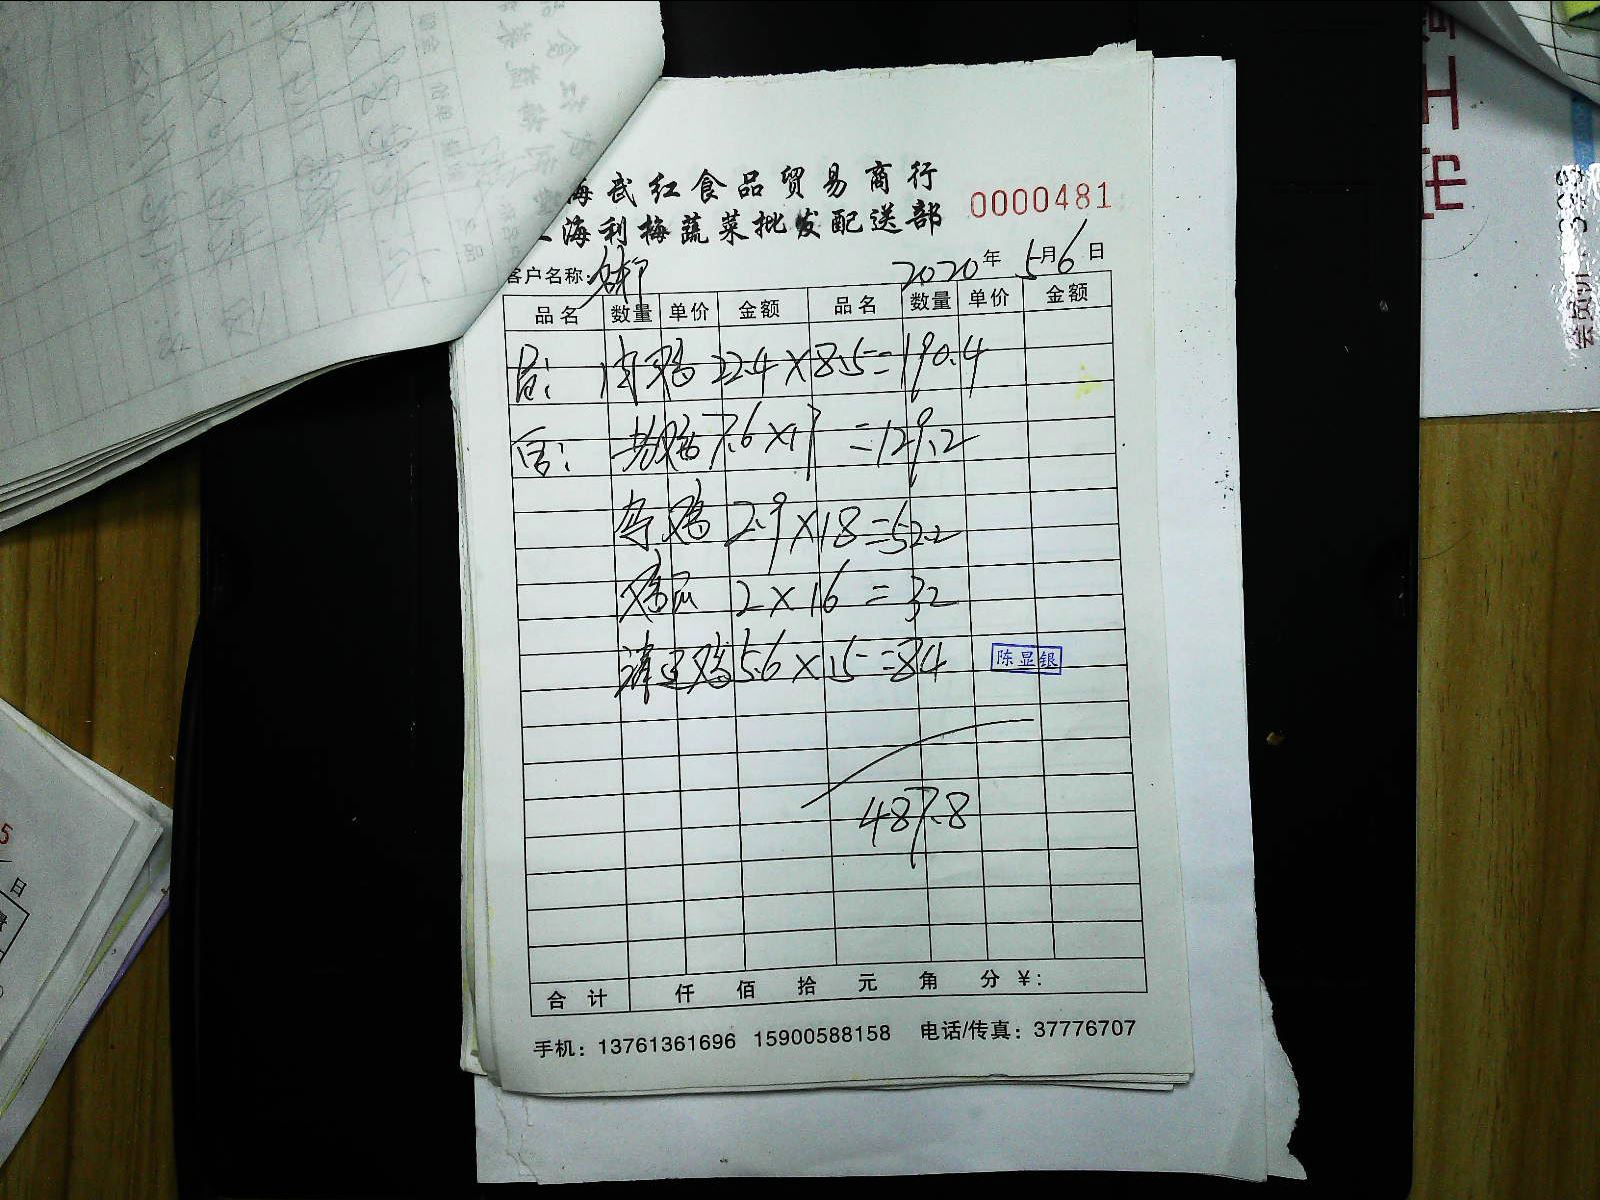 海武红食品贸易商行
海利梅蔬菜批发配送部
0000481
客户名称:
2020年5月6日
品名 数量 单价 金额 品名 数量 单价 金额
肉鸡 22.4×8.5=190.4
老鸡 7.6×17=129.2
草鸡 2.9×18=52.2
鸡爪 2×16=32
清远鸡 5.6×15=84
陈显银
487.8
合计 仟 佰 拾 元 角 分 ¥:
手机: 13761361696 15900588158 电话/传真: 37776707